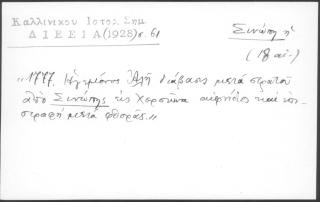 Καλλινίκου Ιστορ. Σημ.
ΔΙΕΕΙΑ (1928) σ. 61
Σινώπη ἡ
(18 αἰ.)
„1777. Ἡγεμόνος Ἀλῆ διάβασις μετά στρατοῦ
ἀπό Σινώπης εἰς Χερσῶνα αἰφνίδιος καί
στροφή μετά φθορᾶς.„